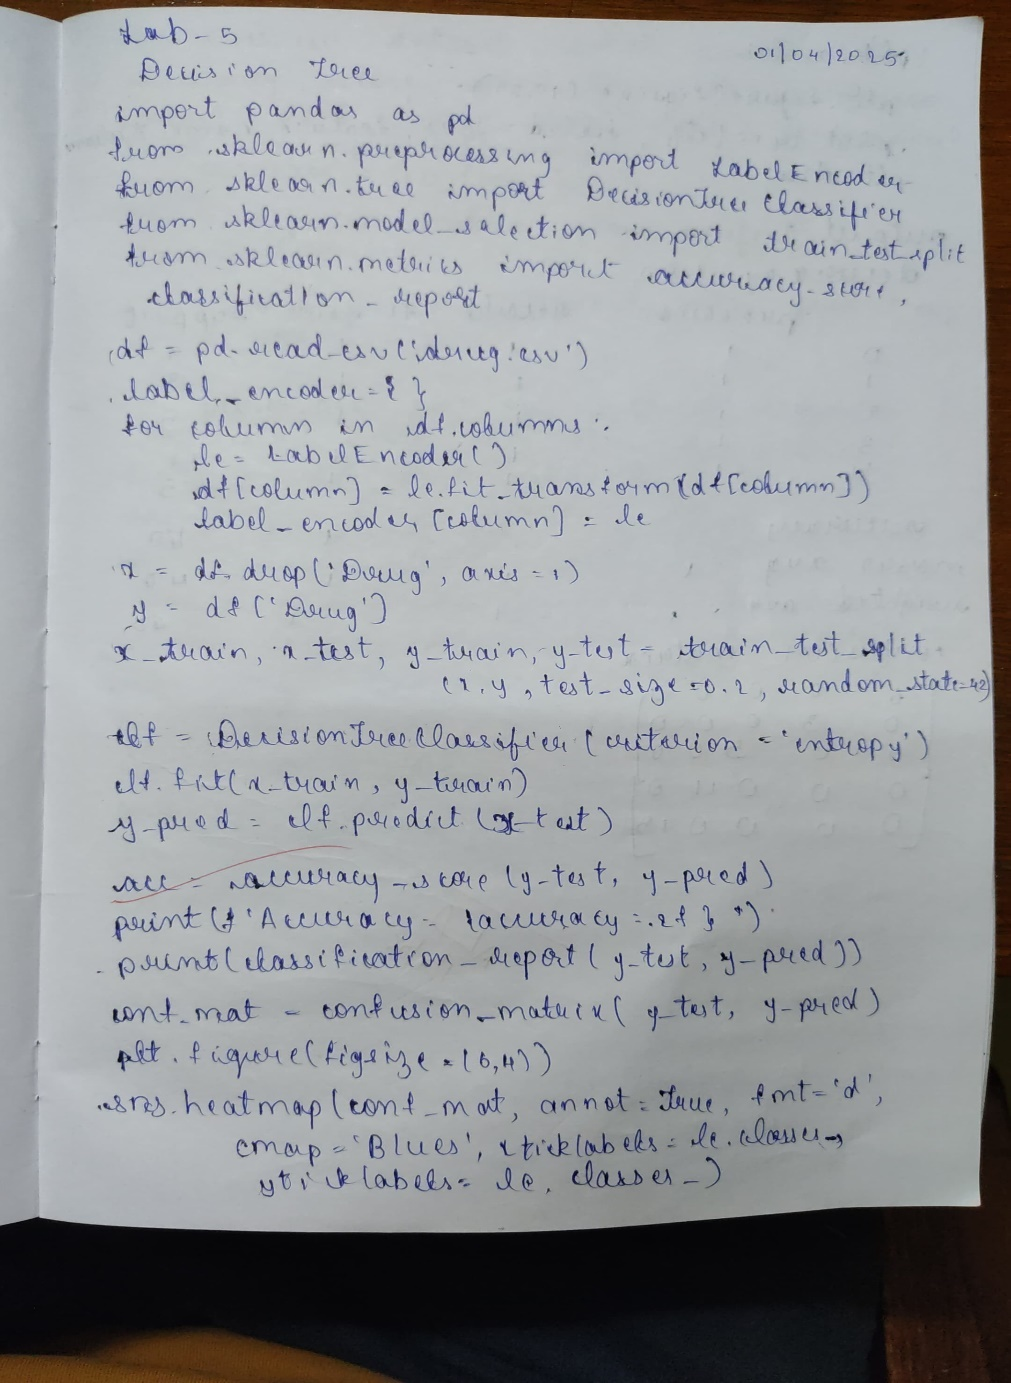 Lab - 5
01/04/2025
Decision Tree
import pandas as pd
from sklearn.preprocessing import LabelEncoder
from sklearn.tree import DecisionTreeClassifier
from sklearn.model_selection import train_test_split
from sklearn.metrics import accuracy_score,
classification_report
df = pd.read_csv('drug.csv')
label_encoder = { }
for column in df.columns :
le = LabelEncoder()
df[column] = le.fit_transform(df[column])
label_encoder[column] = le
x = df.drop('Drug', axis = 1)
y = df['Drug']
x_train, x_test, y_train, y_test = train_test_split
(x, y, test_size = 0.2, random_state=42)
clf = DecisionTreeClassifier (criterion = 'entropy')
clf.fit(x_train, y_train)
y_pred = clf.predict(x_test)
acc = accuracy_score (y_test, y_pred)
print(f 'Accuracy = {accuracy =.2f } ")
print(classification_report(y_test, y_pred))
conf_mat = confusion_matrix( y_test, y_pred)
plt.figure(figsize = (6,4))
sns.heatmap(conf_mat, annot = True, fmt = 'd',
cmap = 'Blues', xticklabels = le.classes_,
yticklabels = le.classes_)